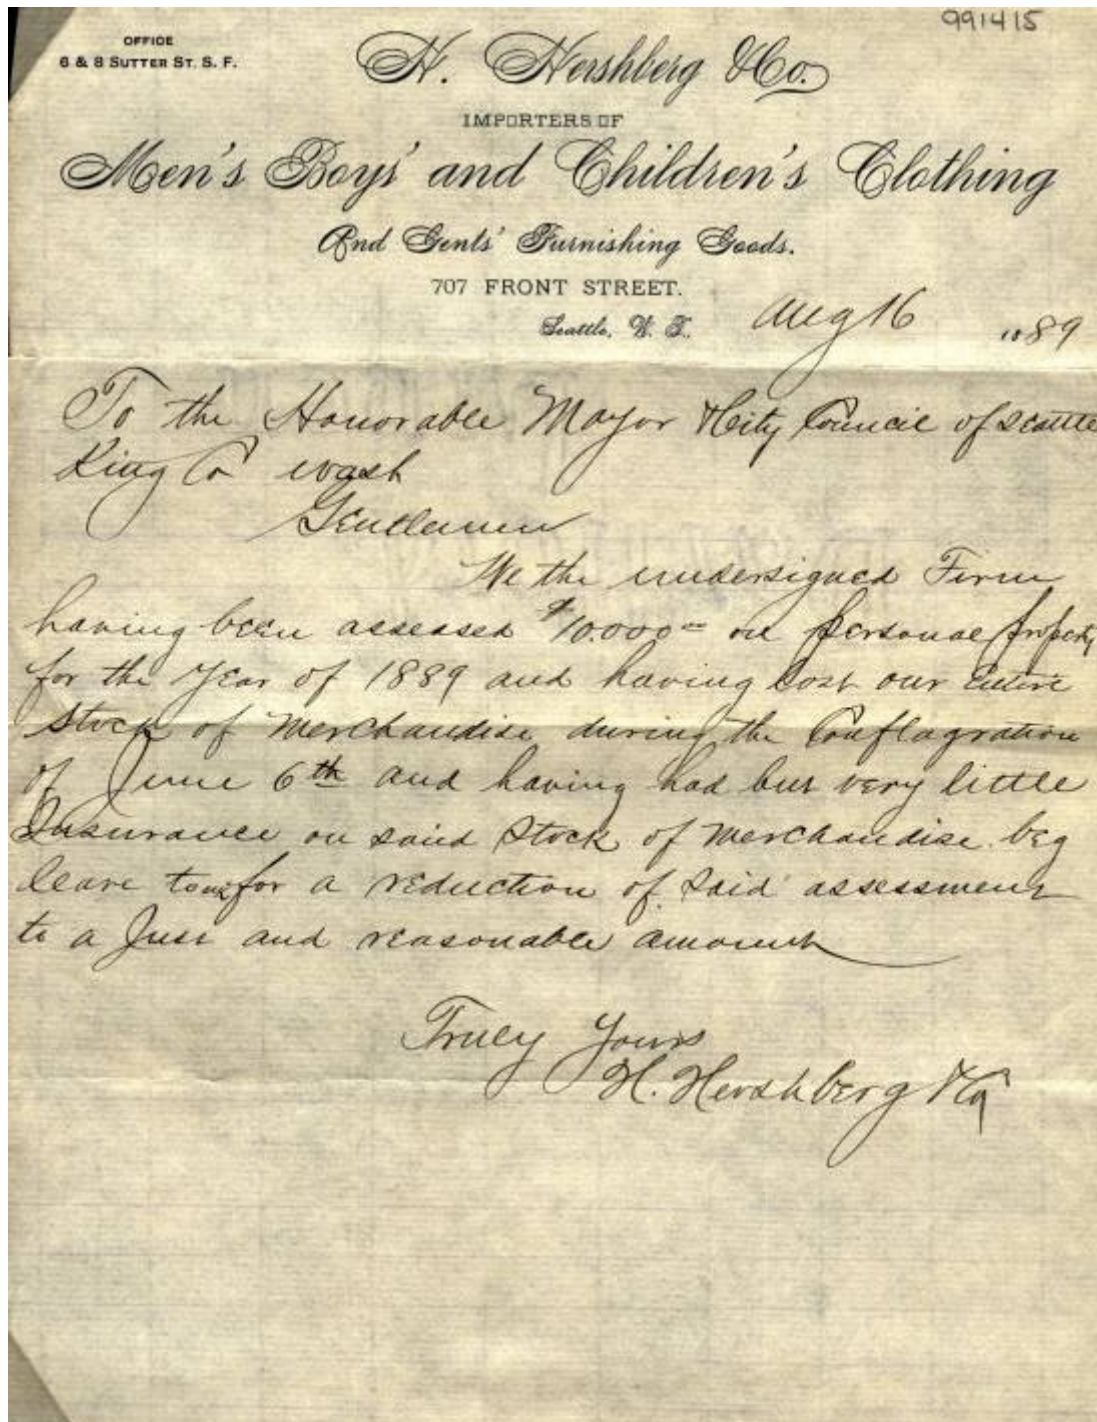 991415
OFFICE
6 & 8 SUTTER ST. S. F.
H. Hershberg & Co.
IMPORTERS OF
Men's Boys' and Children's Clothing
And Gents' Furnishing Goods.
707 FRONT STREET.
Seattle, W. T. Aug 16 1889
To the Honorable Mayor & City Council of Seattle
King Co wash
Gentlemen
We the undersigned Firm
having been assessed $10.000 00 on personal property
for the Year of 1889 and having lost our Entire
Stock of Merchandise during the Conflagration
of June 6th and having had but very little
Insurance on said Stock of Merchandise beg
leave to for a reduction of said assessment
to a Just and reasonable amount
Truly Yours
H. Hershberg & Co